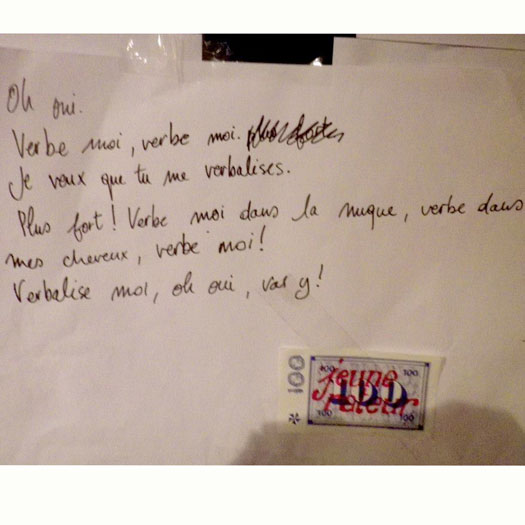 Oh oui.
Verbe moi, verbe moi. plus fort
Je veux que tu me verbalises.
Plus fort! Verbe moi dans la nuque, verbe dans
mes cheveux, verbe moi!
Verbalise moi, oh oui, vas y!
100
100 100
jeune
100
rateur
100 100